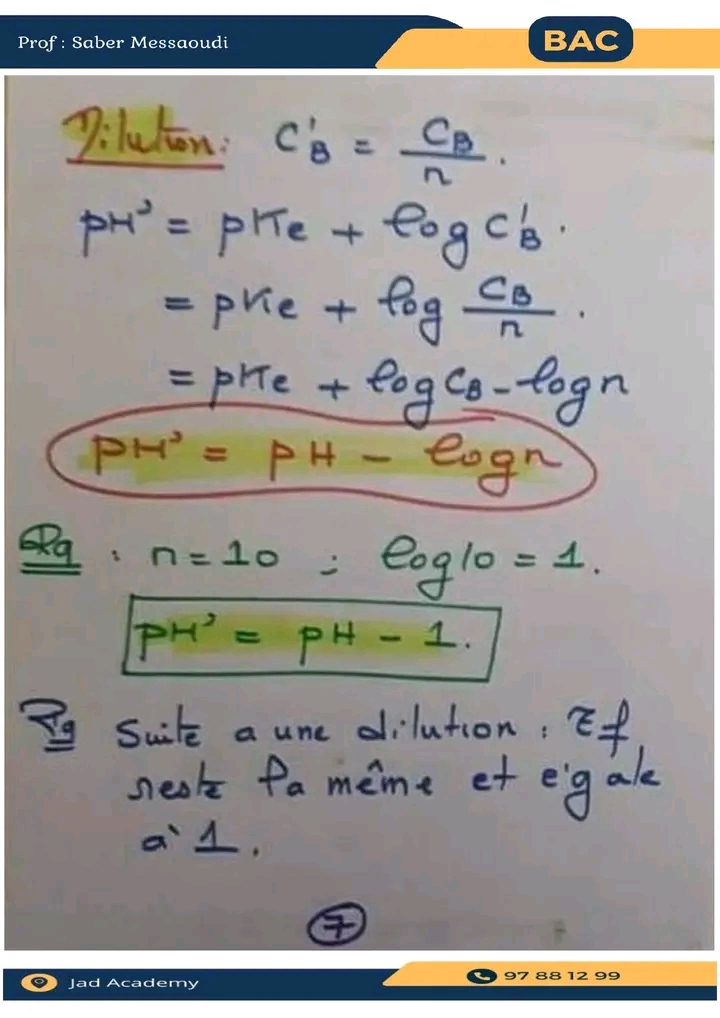 Prof : Saber Messaoudi
BAC
Dilution: C'B = CB/n.
pH' = pKe + log C'B.
= pKe + log CB/n.
= pKe + log CB - log n
pH' = pH - log n
Rq : n = 10 ; log 10 = 1.
pH' = pH - 1.
Rq Suite a une dilution : τf
reste la même et égale
à 1.
7
Jad Academy
97 88 12 99